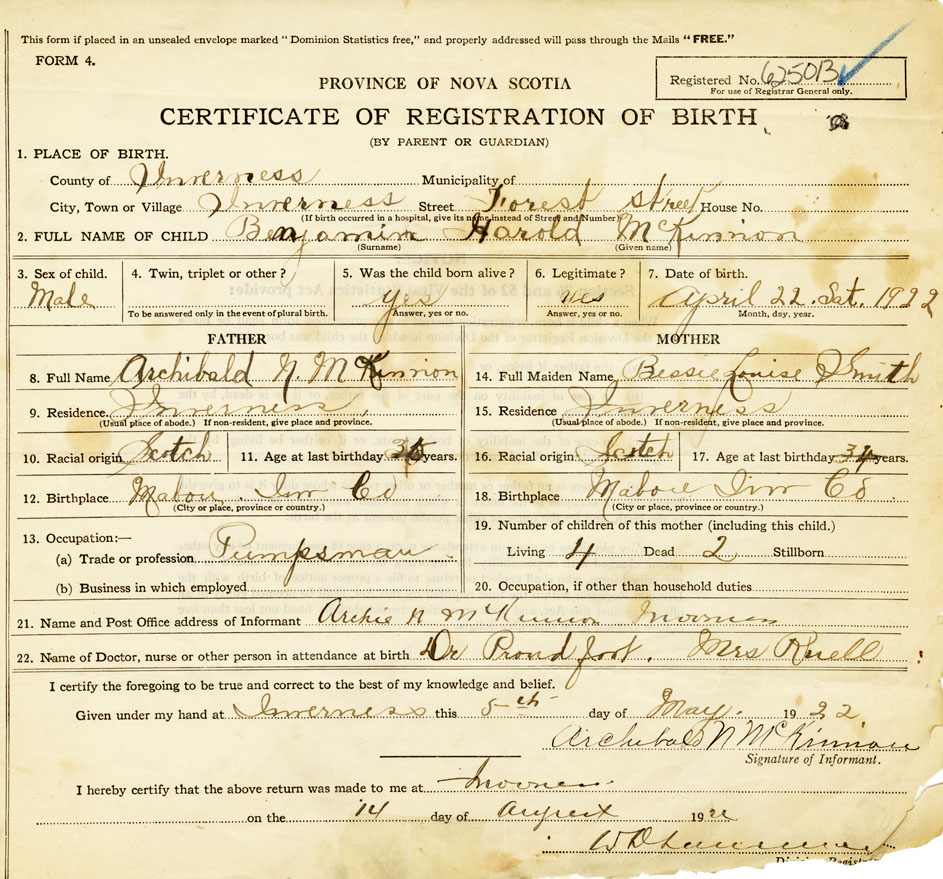 This form if placed in an unsealed envelope marked "Dominion Statistics free," and properly addressed will pass through the Mails "FREE."
FORM 4.
Registered No. 62501B
For use of Registrar General only.
PROVINCE OF NOVA SCOTIA
CERTIFICATE OF REGISTRATION OF BIRTH
(BY PARENT OR GUARDIAN)
1. PLACE OF BIRTH.
County of Inverness Municipality of
City, Town or Village Inverness Street Forest street House No.
(If birth occurred in a hospital, give its name instead of Street and Number)
2. FULL NAME OF CHILD Benjamin Harold McKinnon
(Surname) (Given name)
3. Sex of child. 4. Twin, triplet or other? 5. Was the child born alive? 6. Legitimate? 7. Date of birth.
Male yes yes April 22 Sat. 1922
To be answered only in the event of plural birth. Answer, yes or no. Answer, yes or no. Month, day, year.
FATHER MOTHER
8. Full Name Archibald N. McKinnon 14. Full Maiden Name Bessie Louise Smith
9. Residence. Inverness, 15. Residence Inverness
(Usual place of abode.) If non-resident, give place and province. (Usual place of abode.) If non-resident, give place and province.
10. Racial origin Scotch 11. Age at last birthday years. 16. Racial origin Scotch 17. Age at last birthday 34 years.
12. Birthplace Mabou Inv Co 18. Birthplace Mabou Inv Co
(City or place, province or country.) (City or place, province or country.)
13. Occupation:— 19. Number of children of this mother (including this child.)
(a) Trade or profession Pumpsman Living 4 Dead 2 Stillborn
(b) Business in which employed 20. Occupation, if other than household duties
21. Name and Post Office address of Informant Archie N McKinnon Inverness
22. Name of Doctor, nurse or other person in attendance at birth Dr Proudfoot. Mrs
I certify the foregoing to be true and correct to the best of my knowledge and belief.
Given under my hand at Inverness this 5th day of May. 1922.
Archibald N McKinnon
Signature of Informant.
I hereby certify that the above return was made to me at Inverness
on the 14 day of August 192
Division Registrar